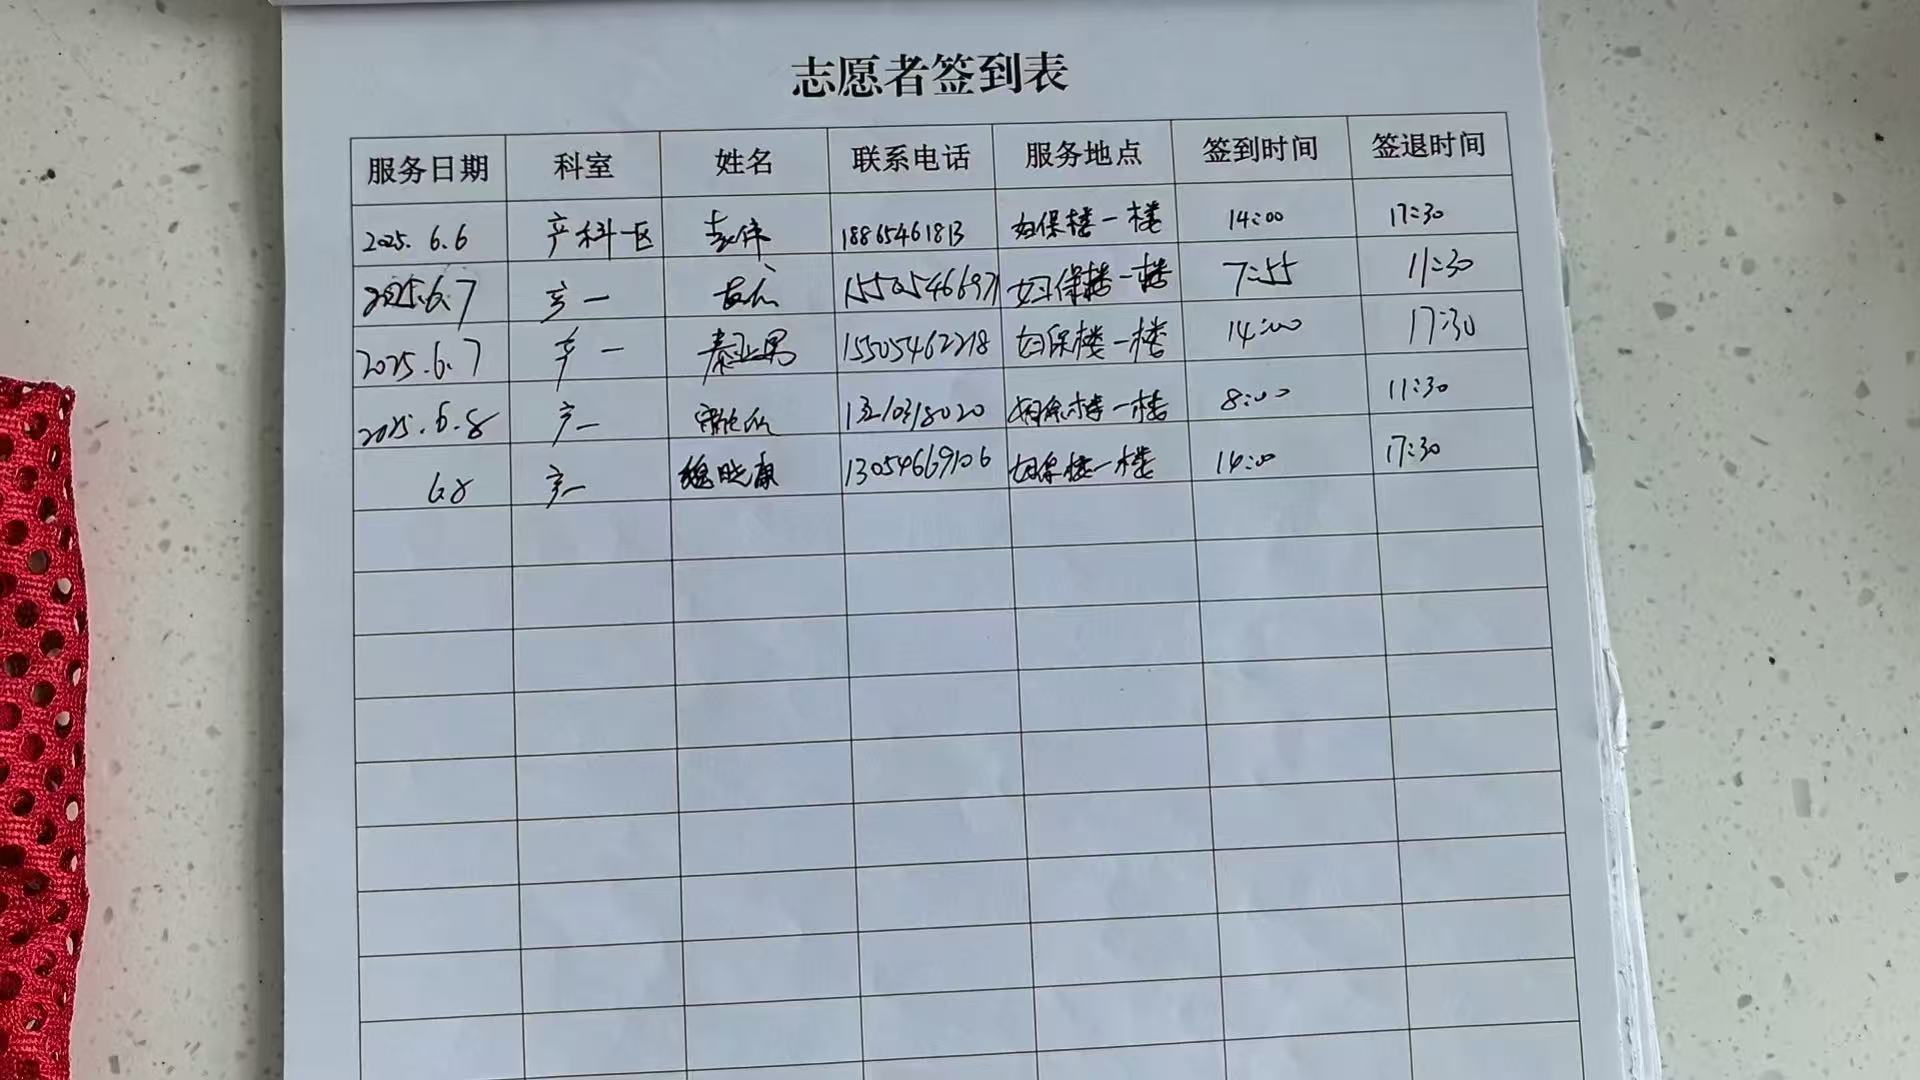 志愿者签到表
服务日期 科室 姓名 联系电话 服务地点 签到时间 签退时间
2025. 6. 6 产科一区 18865461813 妇保楼一楼 14:00 17:30
2025.6.7 产一 妇保楼一楼 7:55 11:30
2025.6.7 产一 秦亚男 15505462218 妇保楼一楼 14:00 17:30
2025.6.8 产一 妇保楼一楼 8:00 11:30
6.8 产一 魏晓康 13054669106 妇保楼一楼 14:00 17:30